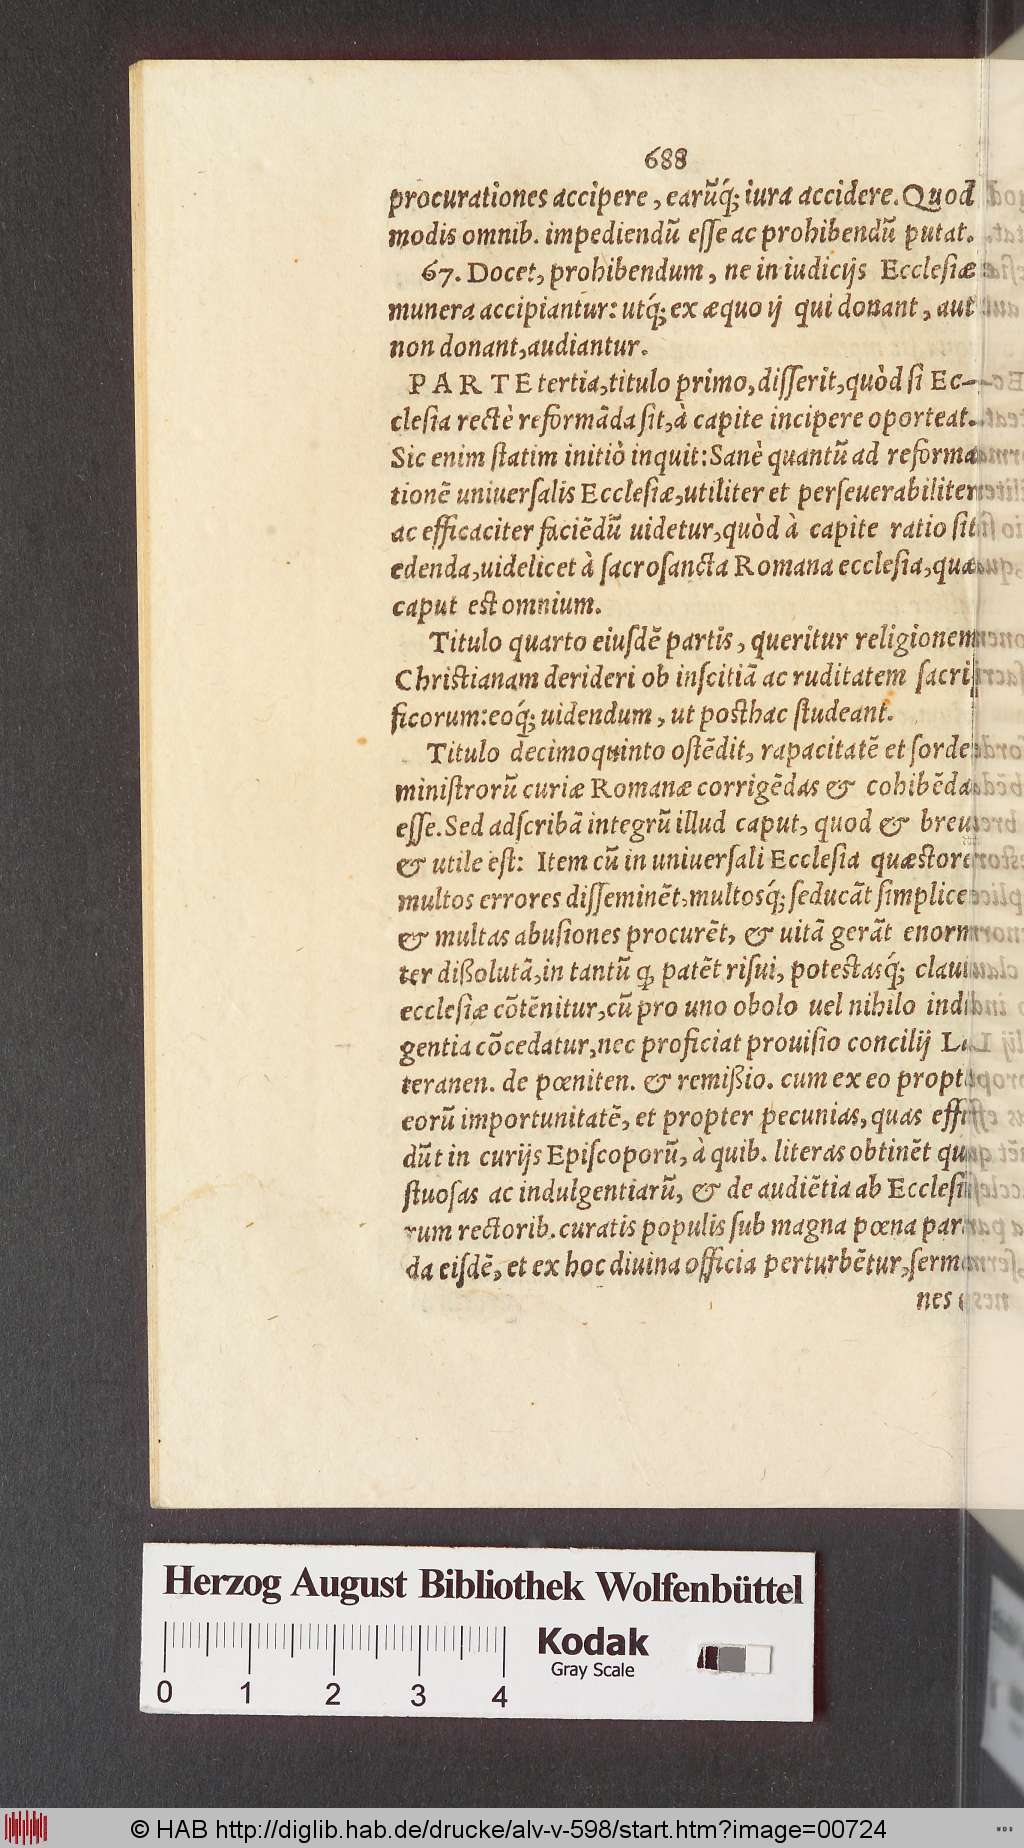 688
procurationes accipere, earũq́; iura accidere. Quod
modis omnib. impediendũ esse ac prohibendũ putat.
67. Docet, prohibendum, ne in iudicijs Ecclesiæ
munera accipiantur: utq́; ex æquo ij qui donant, aut
non donant, audiantur.
PARTE tertia, titulo primo, disserit, quòd si Ec-
clesia rectè reformãda sit, à capite incipere oporteat.
Sic enim statim initiò inquit: Sanè quantũ ad reforma
tionẽ uniuersalis Ecclesiæ, utiliter et perseuerabiliter
ac efficaciter faciẽdũ uidetur, quòd à capite ratio sit
edenda, uidelicet à sacrosancta Romana ecclesia, quæ
caput est omnium.
Titulo quarto eiusdẽ partis, queritur religionem
Christianam derideri ob inscitiã ac ruditatem sacri
ficorum: eoq́; uidendum, ut posthac studeant.
Titulo decimoquinto ostẽdit, rapacitatẽ et sorde
ministrorũ curiæ Romanæ corrigẽdas & cohibẽda
esse. Sed adscribã integrũ illud caput, quod & breu
& utile est: Item cũ in uniuersali Ecclesia quæstore
multos errores disseminẽt, multosq́; seducãt simplice
& multas abusiones procurẽt, & uitã gerãt enorm
ter dißolutã, in tantũ q̨ patẽt risui, potestasq́; claui
ecclesiæ cõtẽnitur, cũ pro uno obolo uel nihilo ind
gentia cõcedatur, nec proficiat prouisio concilij La
teranen. de pœniten. & remißio. cum ex eo propt
eorũ importunitatẽ, et propter pecunias, quas effũ
dũt in curijs Episcoporũ, à quib. literas obtinẽt qu
stuosas ac indulgentiarũ, & de audiẽtia ab Ecclesi
rum rectorib. curatis populis sub magna pœna par
da eisdẽ, et ex hoc diuina officia perturbẽtur, serm
nes
Herzog August Bibliothek Wolfenbüttel
Kodak
Gray Scale
0 1 2 3 4
© HAB http://diglib.hab.de/drucke/alv-v-598/start.htm?image=00724